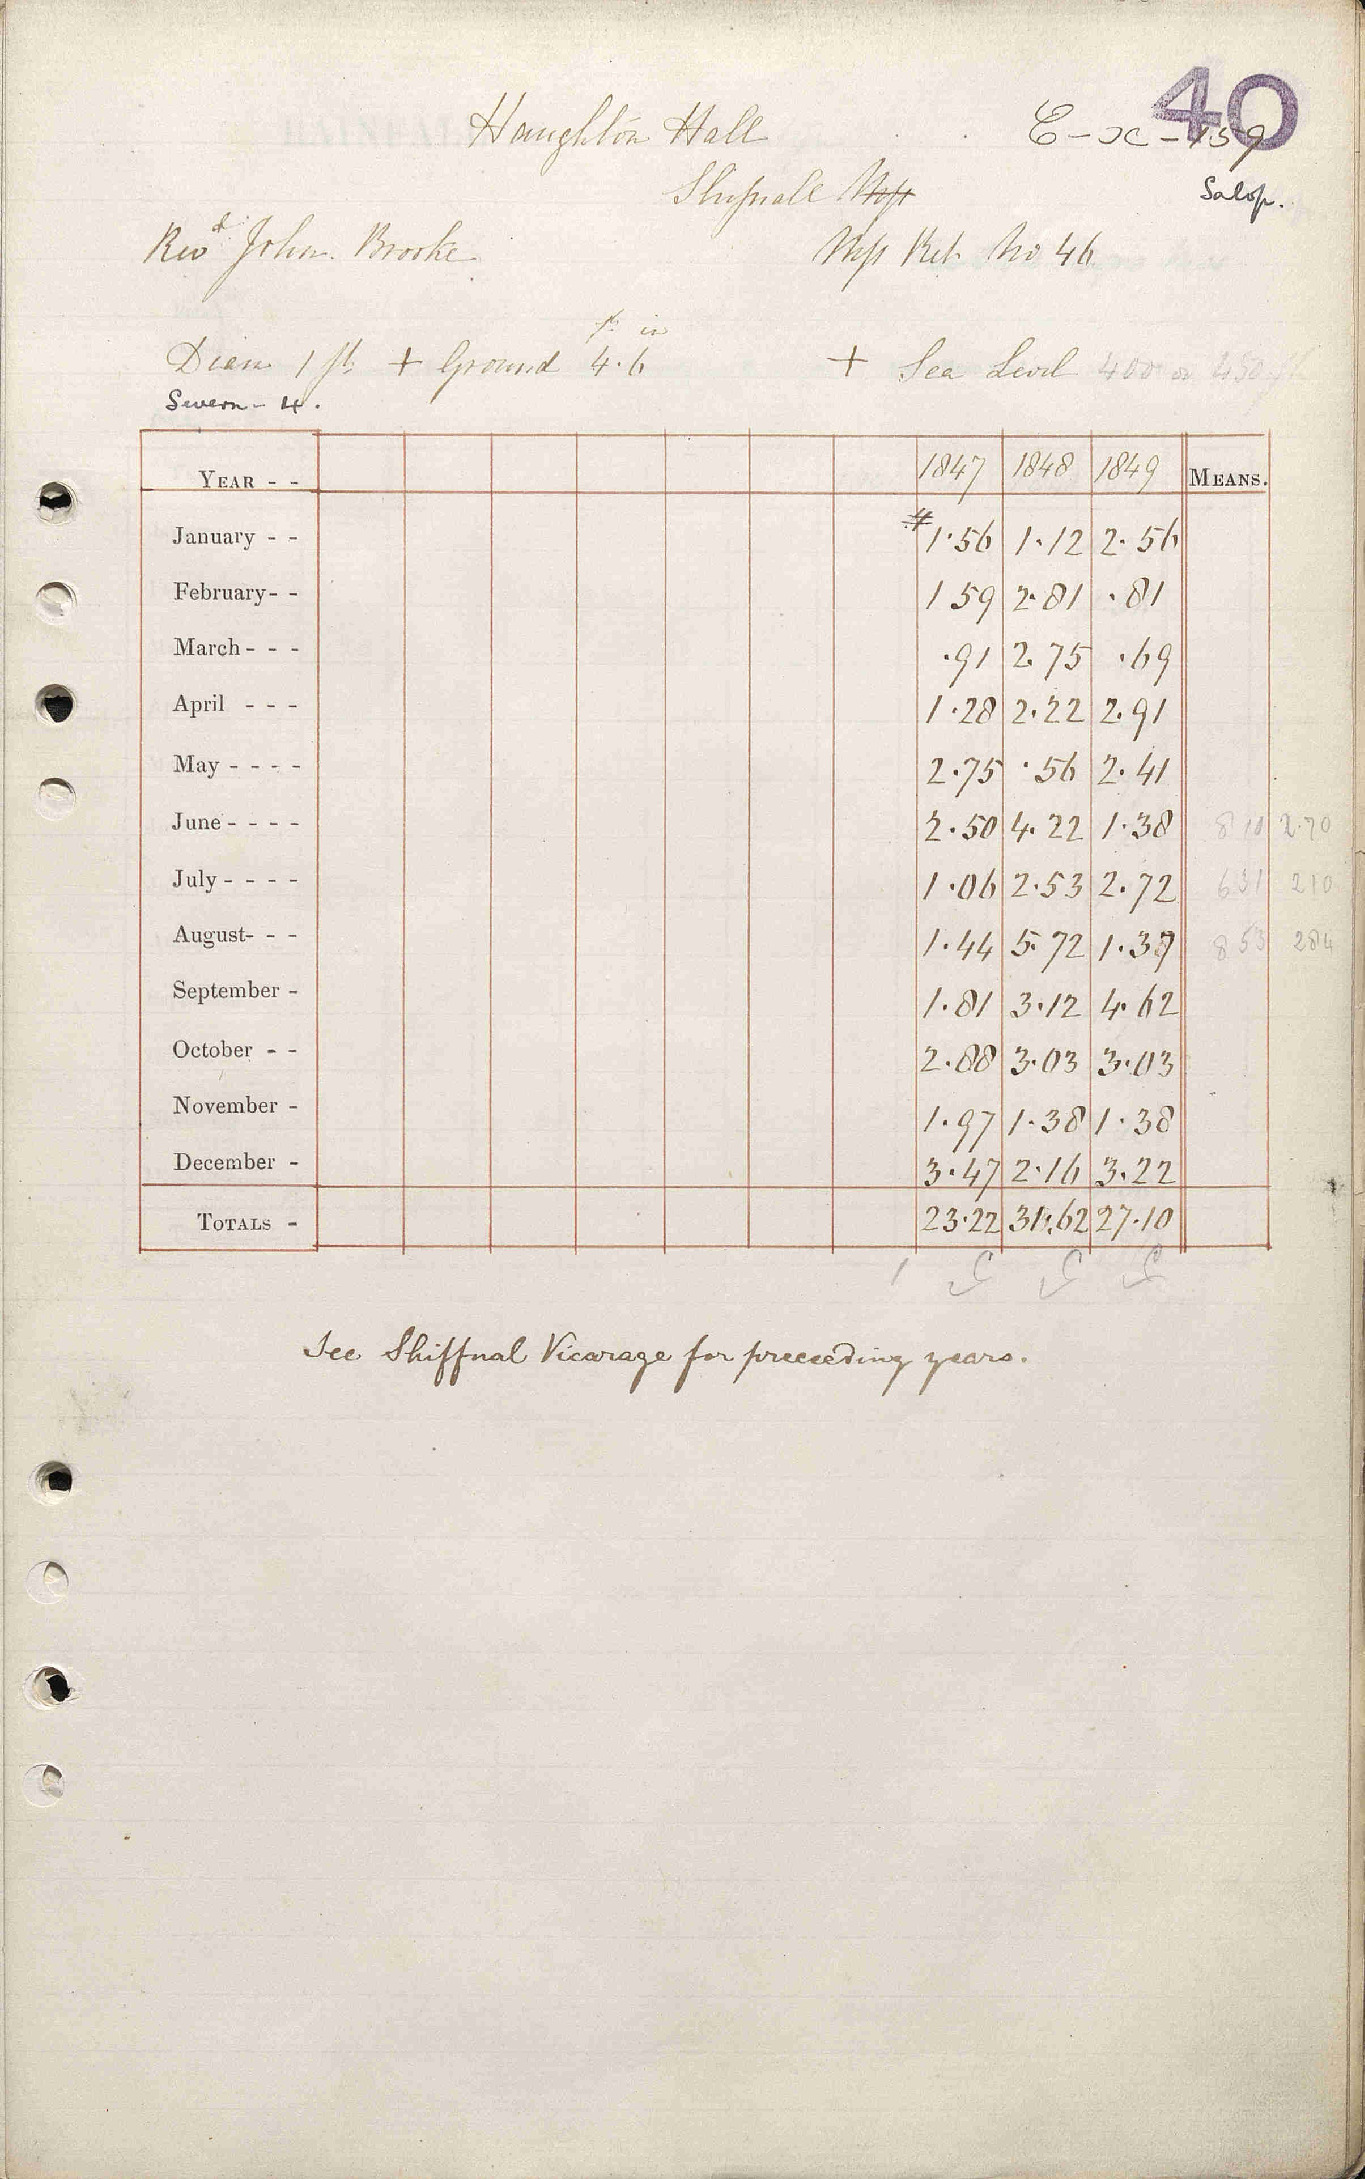 40
Haughton Hall C-x-159
Shifnall Salop.
Revd John Brooke Mss Ret. No 46
ft in
Diam 1 ft + Ground 4.6 + Sea Level 400 or 450
Severn - 4.
YEAR - - 1847 1848 1849 MEANS.
January - - 1.56 1.12 2.56
February - - 1 59 2.81 .81
March - - - .91 2.75 .69
April - - - 1.28 2.22 2.91
May - - - - 2.75 .56 2.41
June - - - - 2.50 4.22 1.38 8 10 2.70
July - - - - 1.06 2.53 2.72 6 31 2 10
August - - - 1.44 5.72 1.37 8 53 284
September - 1.81 3.12 4.62
October - - 2.88 3.03 3.03
November - 1.97 1.38 1.38
December - 3.47 2.16 3.22
TOTALS - 23.22 31.62 27.10
See Shiffnal Vicarage for preceeding years.